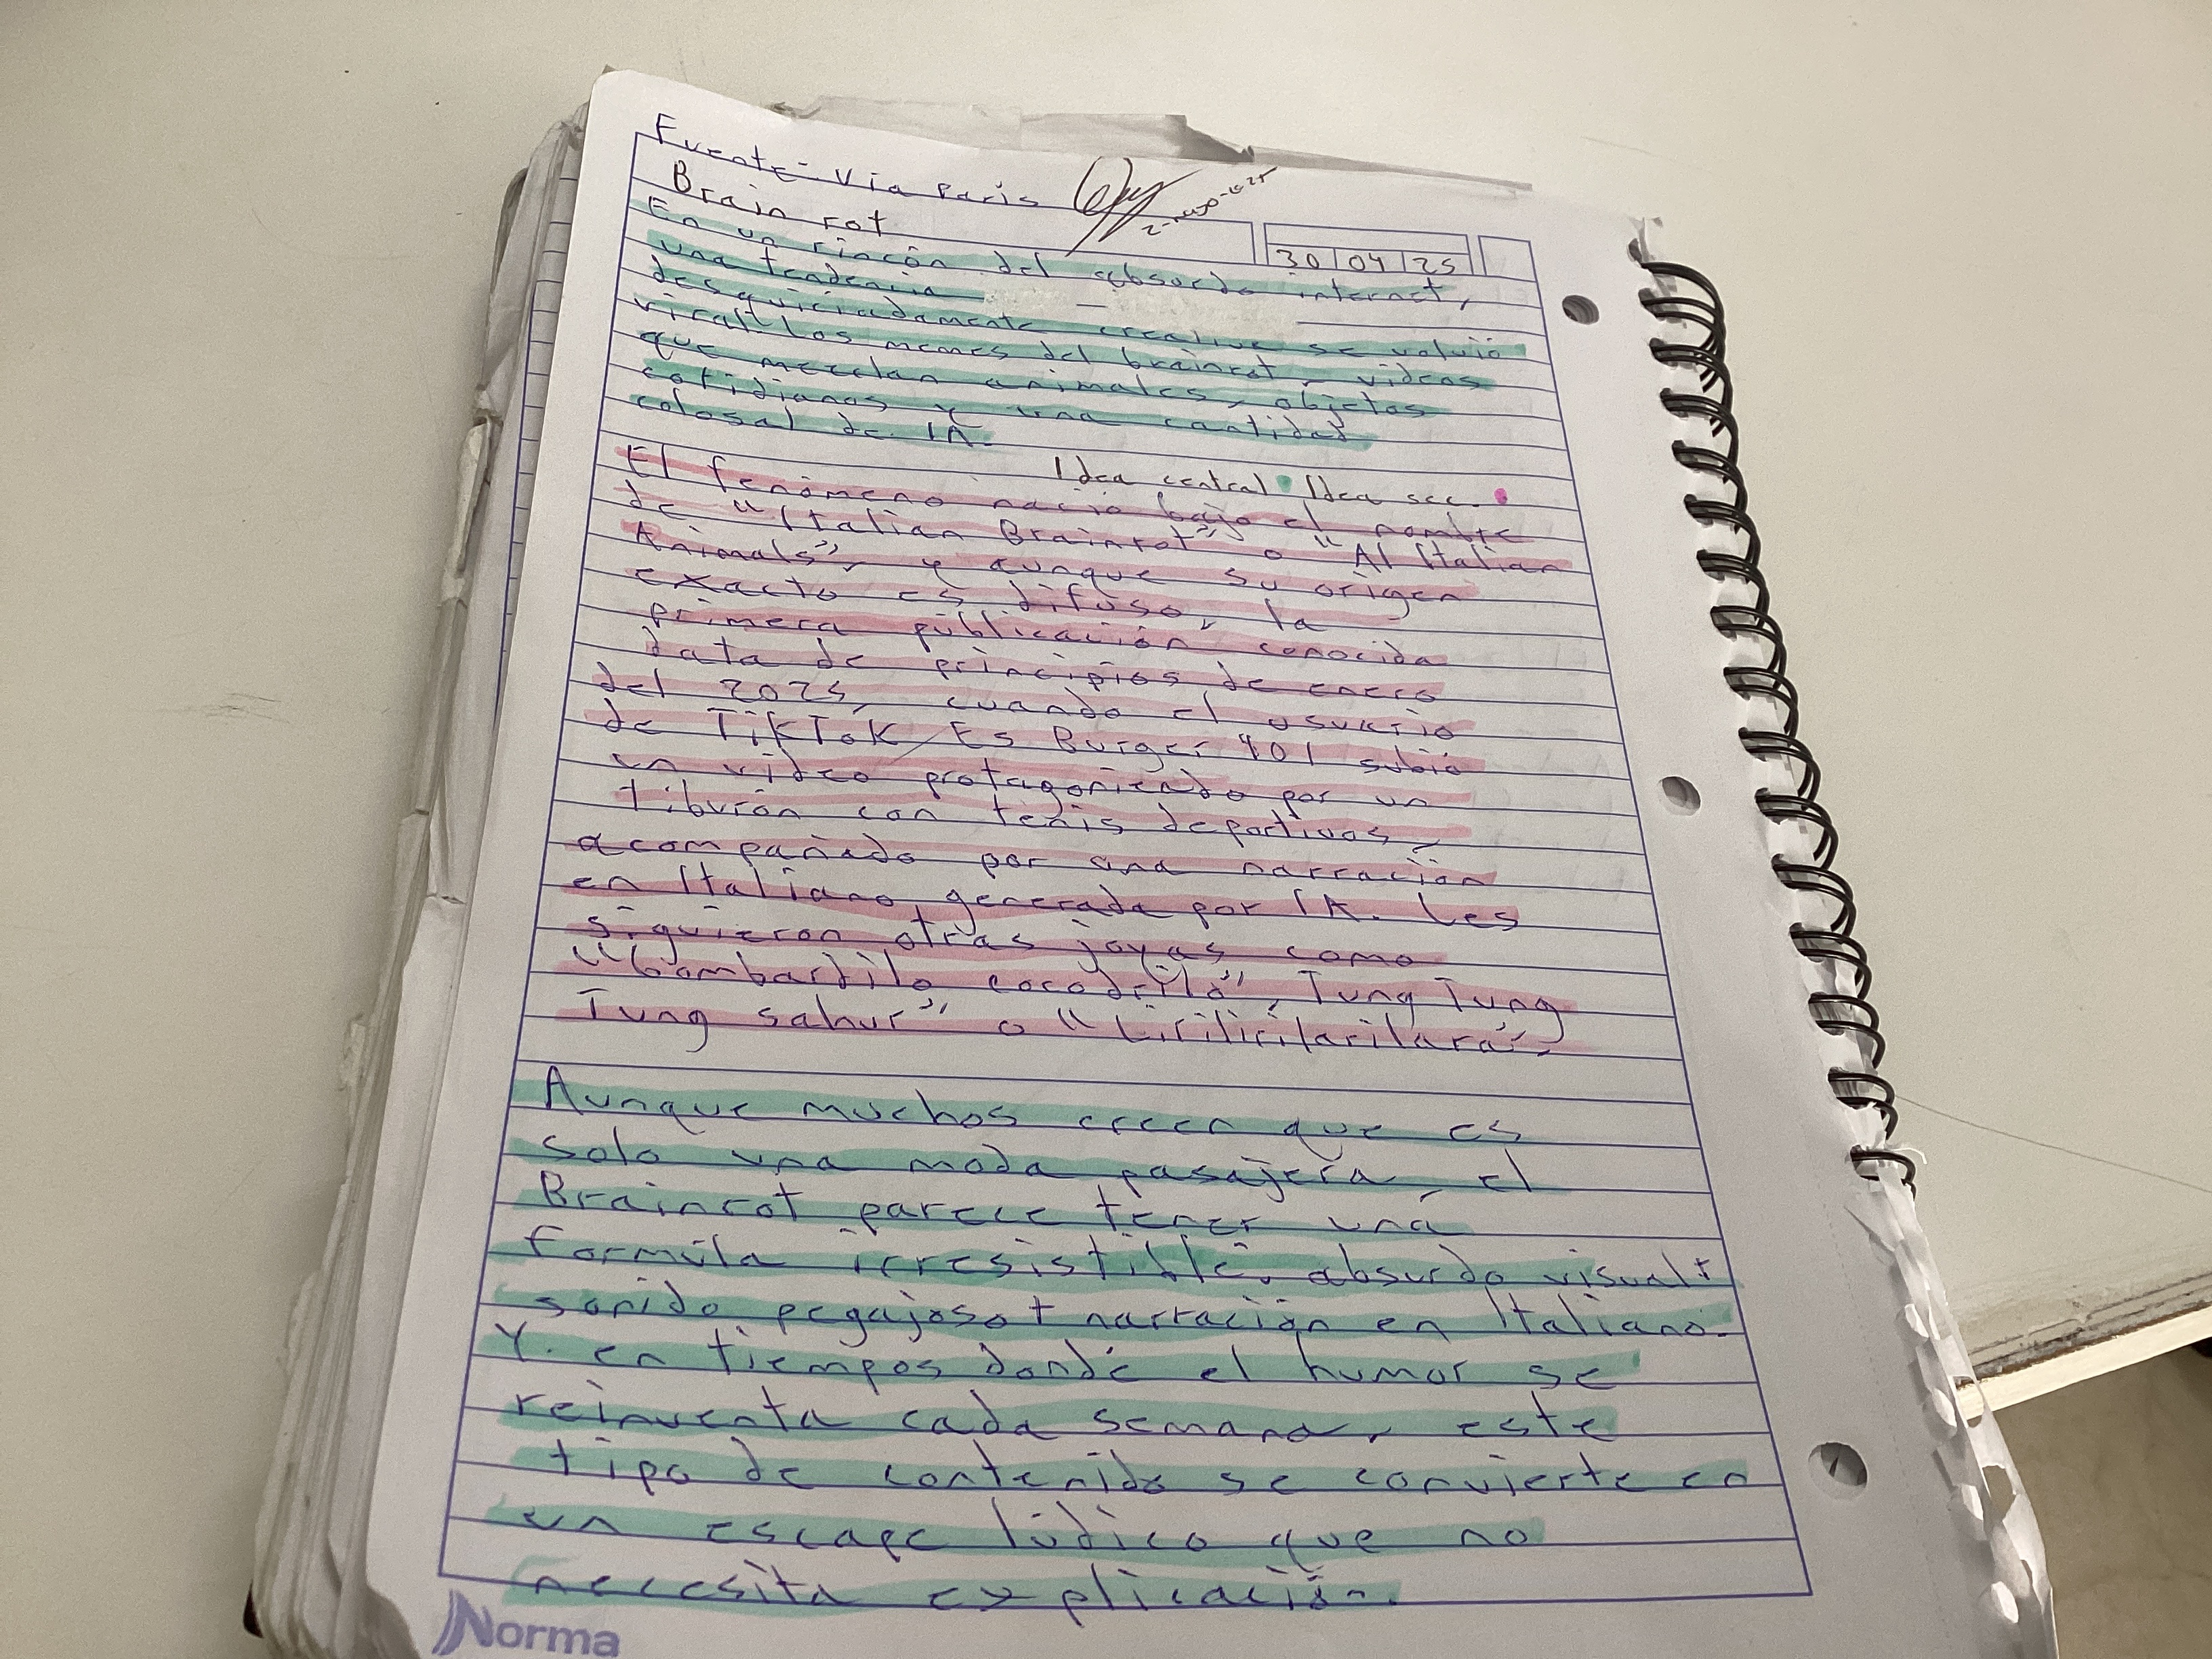 Fuente: Vía París
Brain rot
30 04 25
En un rincón del absurdo internet,
una tendencia
desquiciadamente creativa se volvió
viral: Los memes del brainrot, videos
que mezclan animales, objetos
cotidianos y una cantidad
colosal de IA.
Idea central Idea sec.
El fenómeno nació bajo el nombre
de "Italian Brainrot" o "AI Italian
Animals", y aunque su origen
exacto es difuso, la
primera publicación conocida
data de principios de enero
del 2025, cuando el usuario
de TikTok Es Burger 401 subió
un video protagonizado por un
tiburón con tenis deportivos,
acompañado por una narración
en Italiano generada por IA. Les
siguieron otras joyas como
"bombardilo cocodrilo", Tung Tung
Tung sahur" o "Lirilirilarilara".
Aunque muchos creen que es
solo una moda pasajera, el
Brainrot parece tener una
formula irresistible: absurdo visual +
sonido pegajoso + narración en Italiano.
Y en tiempos donde el humor se
reinventa cada semana, este
tipo de contenido se convierte en
un escape lúdico que no
necesita explicación.
Norma